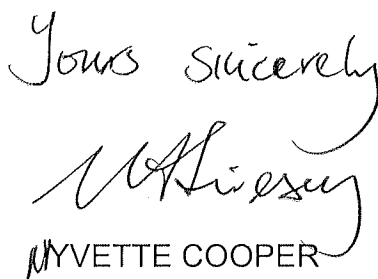 Yours sincerely
YVETTE COOPER